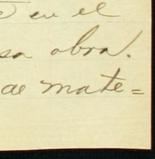 en el
obra.
de mate=